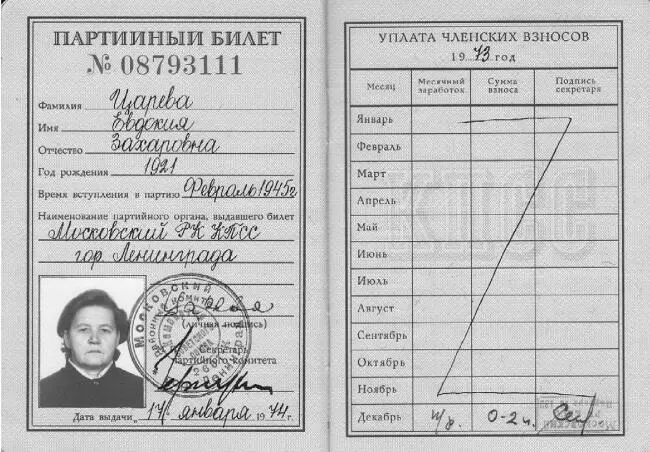 ПАРТИЙНЫЙ БИЛЕТ
№ 08793111
Фамилия Царева
Имя Евдокия
Отчество Захаровна
Год рождения 1921
Время вступления в партию Февраль 1945г
Наименование партийного органа, выдавшего билет
Московский РК КПСС
гор. Ленинграда
(личная подпись)
Секретарь
партийного комитета
Дата выдачи „17" января 1974г.
УПЛАТА ЧЛЕНСКИХ ВЗНОСОВ
1973 год
Месяц Месячный заработок Сумма взноса Подпись секретаря
Январь
Февраль
Март
Апрель
Май
Июнь
Июль
Август
Сентябрь
Октябрь
Ноябрь
Декабрь н/р. 0-2к.
КПСС